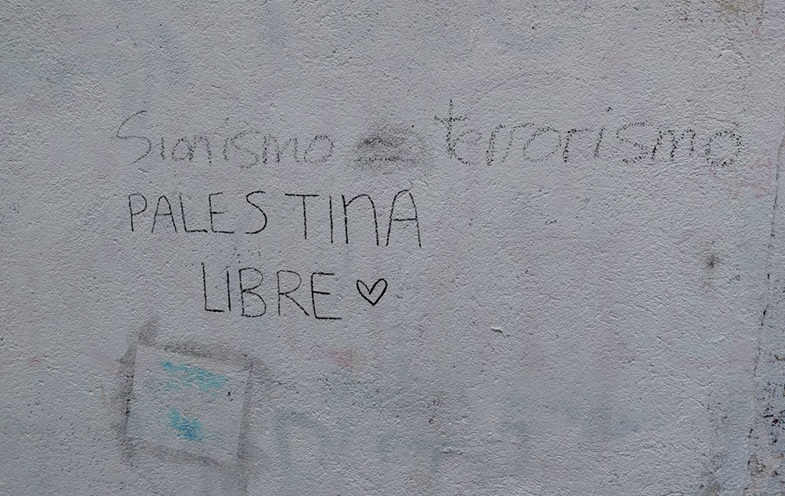 Sionismo = terrorismo
PALESTINA
LIBRE ♡